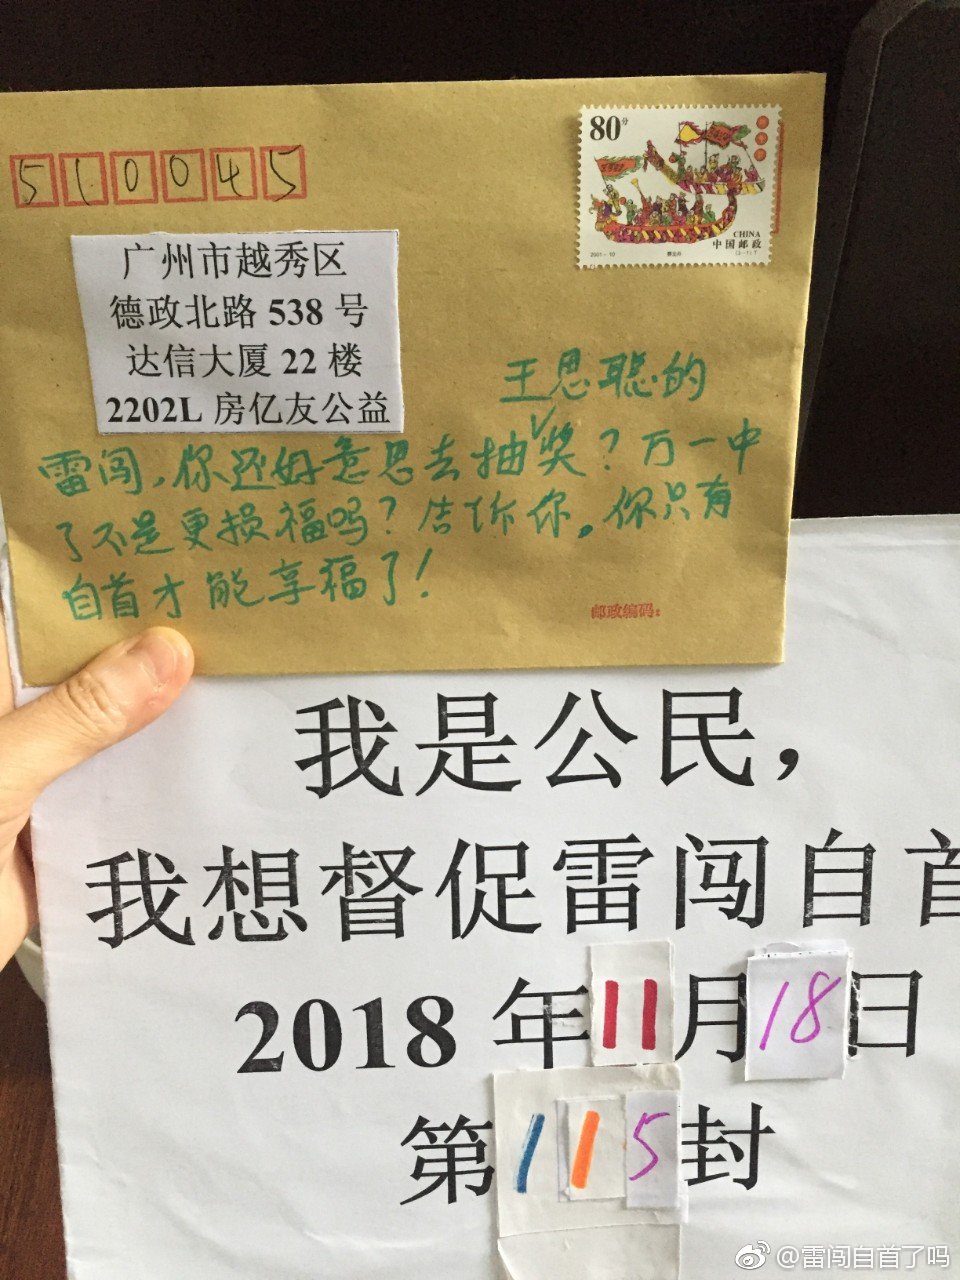 510045
80分
CHINA
中国邮政
2001-10
赛龙舟
(3-1)T
广州市越秀区
德政北路 538 号
达信大厦 22 楼
2202L 房亿友公益
王思聪的
雷闯，你还好意思去抽奖？万一中
了不是更损福吗？告诉你，你只有
自首才能享福了！
邮政编码：
我是公民，
我想督促雷闯自首
2018 年 11 月 18 日
第 115 封
@雷闯自首了吗